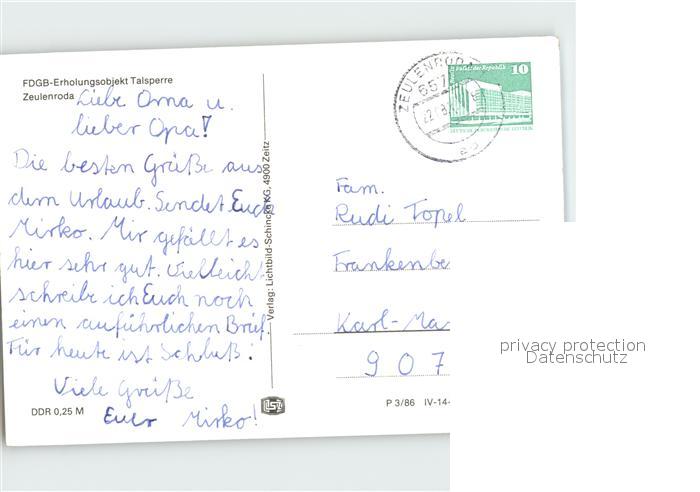 FDGB-Erholungsobjekt Talsperre
Zeulenroda
Liebe Oma u.
lieber Opa!
Die besten Grüße aus
dem Urlaub. Sendet Euch
Mirko. Mir gefällt es
hier sehr gut. Vielleicht
schreibe ich Euch noch
einen auführlichen Brief.
Für heute ist Schluß!
Viele Grüße
Euer Mirko!
DDR 0,25 M
Verlag: Lichtbild-Schincke KG, 4900 Zeitz
ZEULENRODA
657
Palast der Republik
10
DEUTSCHE DEMOKRATISCHE REPUBLIK
Fam.
Rudi Topel
Frankenbe
Karl-Ma
907
P 3/86 IV-14-
privacy protection
Datenschutz